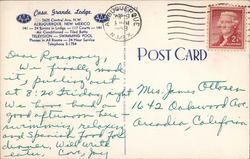 Casa Grande Lodge
2625 Central Ave., N.W.
ALBUQUERQUE, NEW MEXICO
Air Conditioned — Tiled Baths
TELEVISION — SWIMMING POOL
Phones in All Rooms — 24 Hour Service
Telephone
ALBUQUERQUE
POST CARD
Dear Rosemary,
We finally made
it, pulling out
at 8:20 Friday night
We have had a
good afternoon here
swimming, relaxing
and Spanish food for
dinner. Will write
later. Love, Joey
Mrs James Olson
1642 Oakwood Ave
Arcadia, California